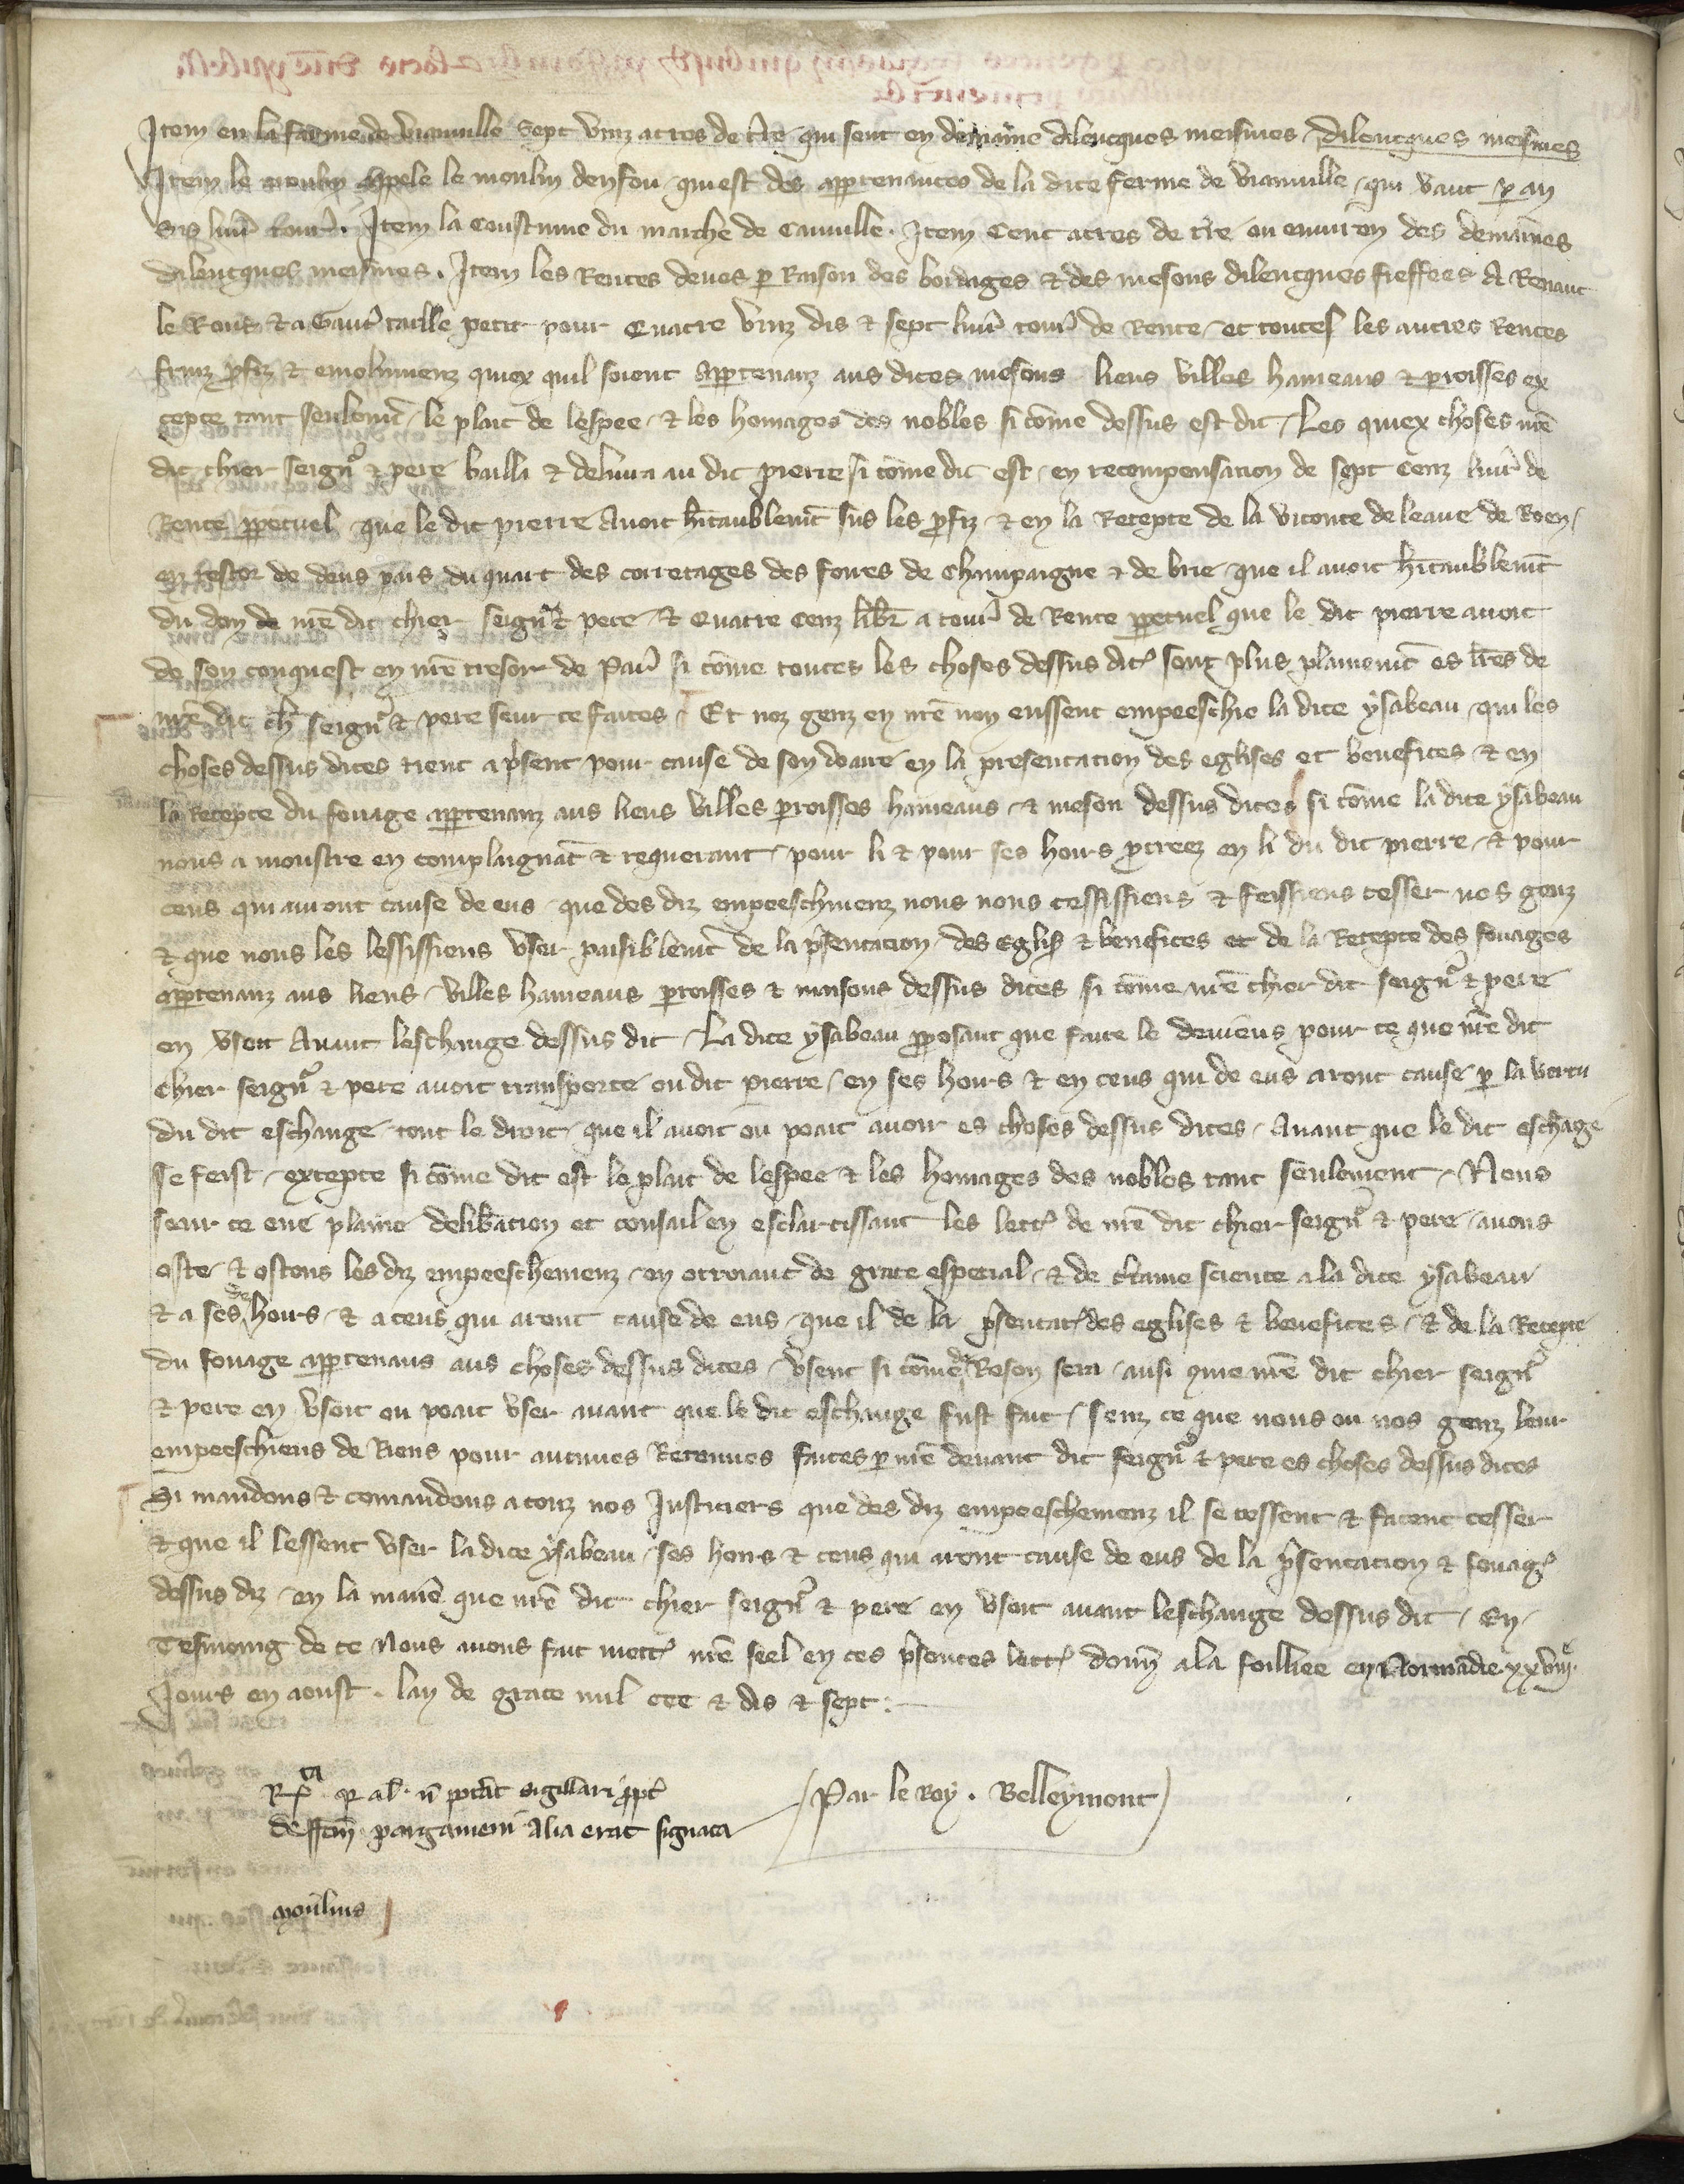 Item en la ferme de Vianville sept vinz acres de tr̃re qui sont en demaine dilencques meismes dilencques meismes
Item le moulin apele le moulin denfou qui est des apptenances de la dite ferme de Vianville qui vaut p an
sis liur̃ tour̃. Item la coustume du marche de Canville. Item cent acres de tr̃e ou environ des demaines
dilencques meismes. Item les Rentes deues p Raison des bordages & des mesons dilencques fieffees A Renaut
le Rous & a Gaut̃ taille petit pour Quatre vinz dis & sept liur̃ tour̃ de Rente et toutes les autres Rentes
fruiz pfiz & emolumenz quiex quil soient apptenanz aus dites mesons liens villes hameaus & proisses ex
cepte tant seulemt̃ le plait de lespee & les homages des nobles si cõme dessus est dit Les quiex choses nr̃e
dit chier seign̑ & pere bailla & delivra au dit pierre si cõme dit est en recompensation de sept cenz liur̃ de
Rente ppetuel que le dit pierre Avoit hit̃aublemt̃ sus les pfiz & en la Recepte de la viconte de leaue de Roen
en restor de deus pars du quart des corretages des foires de Champaigne & de brie que il avoit hit̃aublemt̃
du don de nr̃e dit chier seign̑ & pere & Quatre cenz libr̃ a tour̃ de Rente ppetuel que le dit pierre avoit
de son conquest en nr̃e tresor de Par̃ si cõme toutes les choses dessus dit̃ sont plus plainemt̃ es lr̃es de
nr̃e dit ch̃ seign̑ & pere seur ce faites Et noz genz en nr̃e non eussent empeeschie la dite ysabeau qui les
choses dessus dites tient a psent pour cause de son doaire en la presentation des eglises et benefices & en
la Recepte du fouage apptenanz aus liens villes proisses hameaus & meson dessus dites si cõme la dite ysabeau
nous a monstre en complaignãt & requerant pour li & pour ses hoirs pcreez en li du dit pierre & pour
ceus qui auront cause de eus que des diz empeeschmenz nous nous cessissiens & feissiens cesser nos genz
& que nous les lessissiens user paisiblemt̃ de la psentation des Eglis̃ & benefices et de la Recepte des fouages
apptenanz aus liens villes hameaus proisses & maisons dessus dites si cõme nr̃e chier dit seign̑ & pere
en usoit Avant leschange dessus dit La dite ysabeau pposant que faire le deuiens pour ce que nr̃e dit
chier seign̑ & pere avoit transporte ou dit pierre en ses hoirs & en ceus qui de eus aront cause p la vertu
du dit eschange tout le droit que il avoit ou poait avoir es choses dessus dites Avant que le dit eschãge
se feist excepte si cõme dit est le plait de lespee & les homages des nobles tant seulement Nous
seur ce eue plaine delibãtion et consail en esclarcissant les lett̃ de nr̃e dit chier seign̑ & pere avons
oste & ostons les diz empeeschemenz en otroiant de grace especial & de ct̃aine science a la dite ysabeau
& a ses de hoirs & a ceus qui aront cause de eus que il de la psentat̃ des eglises & benefices & de la Recepte
du fouage apptenans aus choses dessus dites usent si cõme de Reson sera ausi que nr̃e dit chier seign̑
& pere en usoit ou poait user avant que le dit eschange fust fait senz ce que nous ou nos genz leur
empeeschiens de Riens pour aucunes Retenues faites p nr̃e devant dit seign̑ & pere es choses dessus dites
Si mandons & comandons a touz nos Justiciers que des diz empeeschemenz il se cessent & facent cesser
& que il lessent user la dite ysabeau ses hoirs & ceus qui aront cause de eus de la psentacion & fouag̃
dessus diz en la manie᷉ que nr̃e dit chier seign̑ & pere en usoit avant leschange dessus dit En
Tesmoing de ce Nous avons fait mett̃ nr̃e seel en ces psentes lett̃ donn̑ a la foilliee en Normãdie xxviij.e
Jours en aoust. lan de grace mil ccc & dis & sept:
Rx.ta p al. ñ potãt sigillari ppt̃ Par le Roy. Belleymont
deffcm̃ pargameni Alia erat signata
moulins